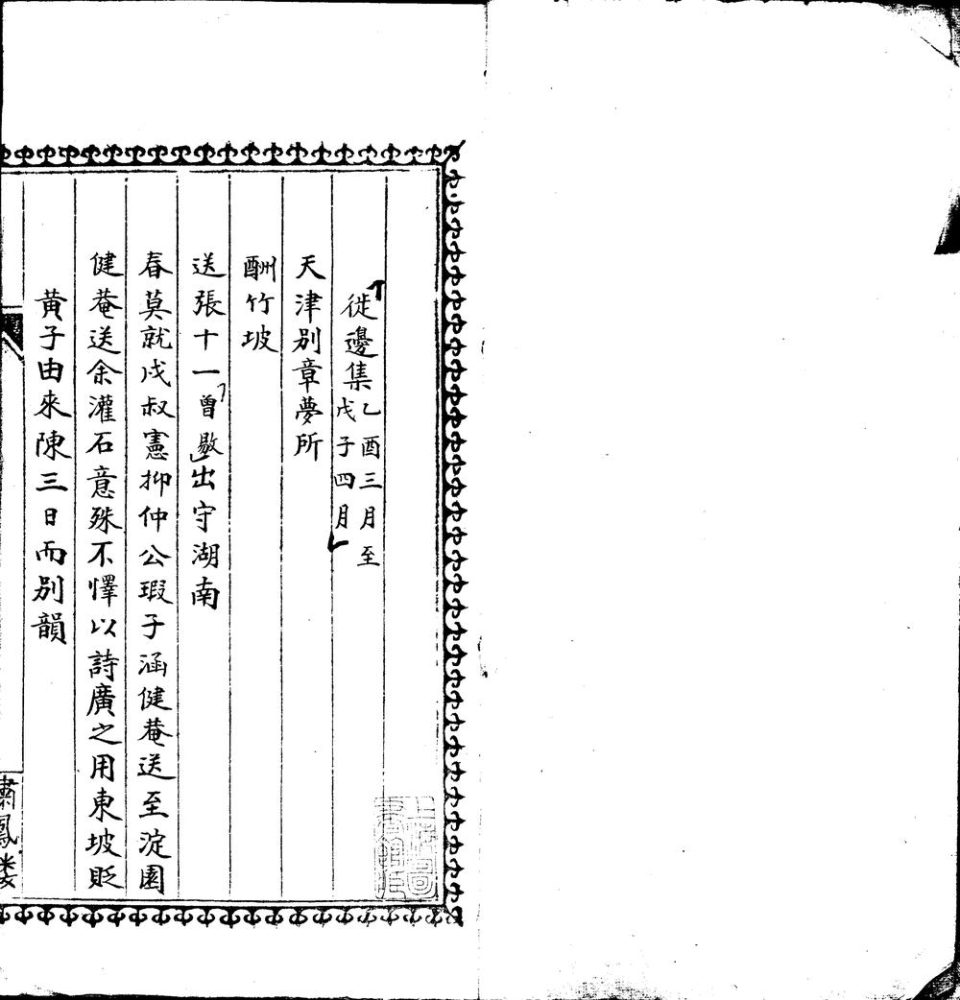 徙邊集乙酉三月至戊子四月
天津別章夢所
酬竹坡
送張十一曾敭出守湖南
春莫就戍叔憲抑仲公瑕子涵健菴送至淀園
健菴送余灌石意殊不懌以詩廣之用東坡貶
黃子由來陳三日而別韻
嘯鳳樓